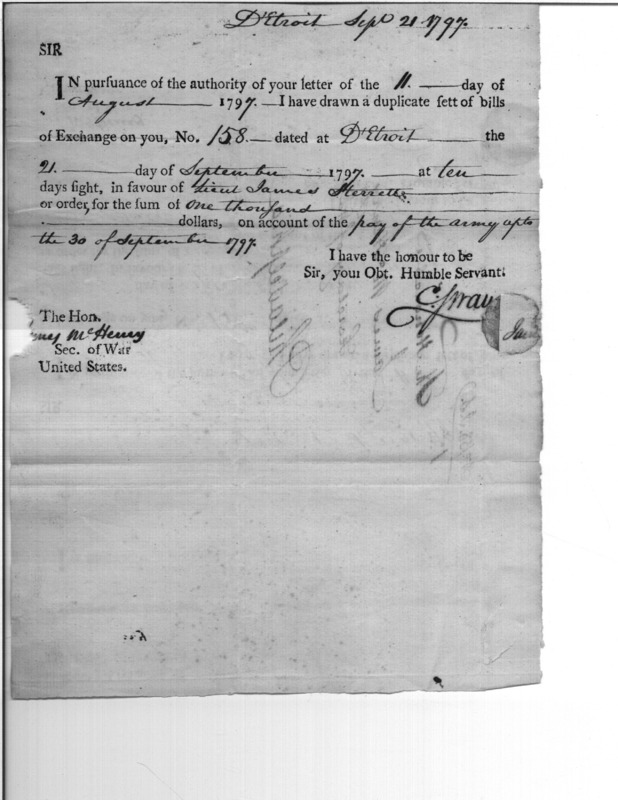 D'Etroit Sept 21 1797.
SIR
IN pursuance of the authority of your letter of the 11. day of
August 1797. I have drawn a duplicate sett of bills
of Exchange on you, No. 158. dated at D'Etroit the
21. day of September 1797. at ten
days sight, in favour of Lieut James Sterrette
or order, for the sum of one thousand
dollars, on account of the pay of the army upto
the 30 of September 1797.
I have the honour to be
Sir, your Obt. Humble Servant.
C. Swan
The Hon.
McHenry
Sec. of War
United States.